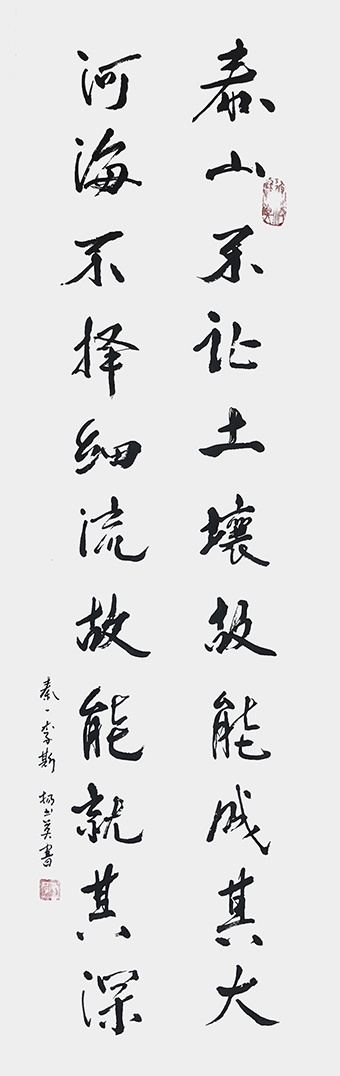 泰山不让土壤故能成其大
河海不择细流故能就其深
秦 李斯 杨 英书